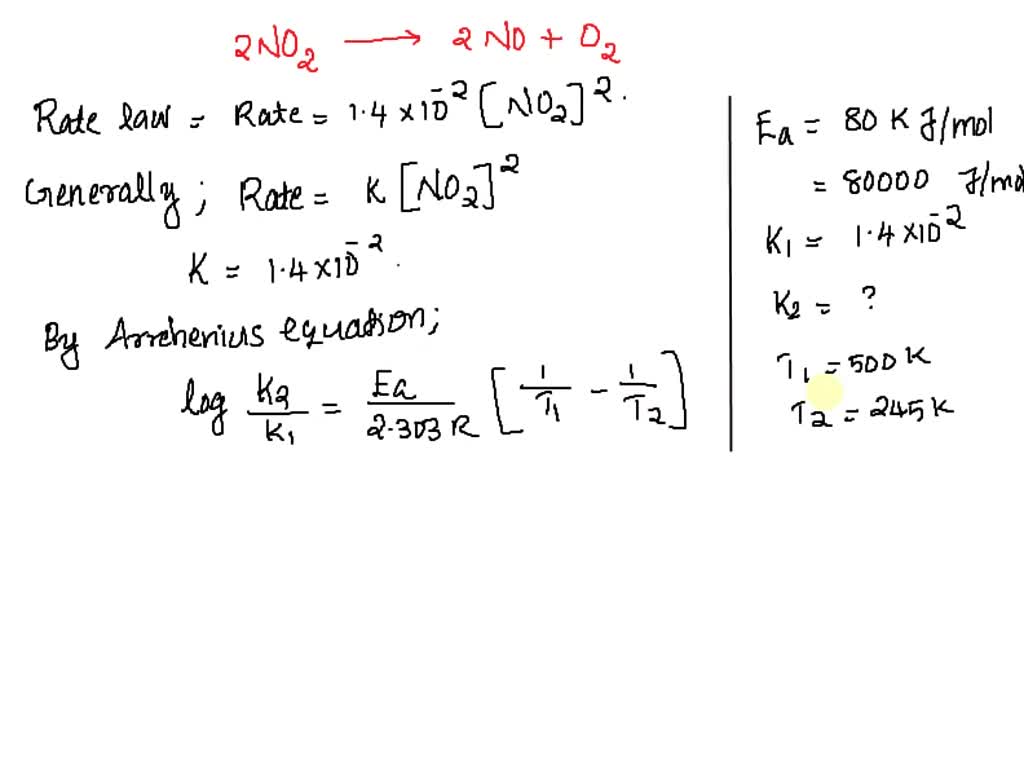 2NO₂ ⟶ 2 NO + O₂
Rate law = Rate = 1.4 × 10⁻² [NO₂]².
Generally; Rate = K [NO₂]²
K = 1.4 × 10⁻².
By Arrehenius equation;
log K2/K1 = Ea/2.303 R [1/T1 − 1/T2]
Ea = 80 K J/mol
= 80000 J/mol
K1 = 1.4 × 10⁻²
K2 = ?
T1 = 500 K
T2 = 245 K